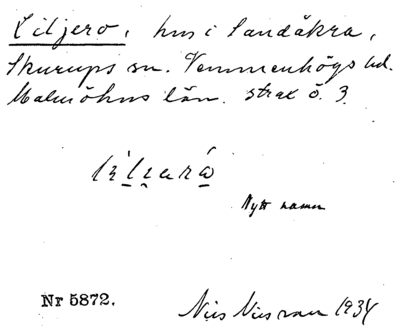 Liljero, hus i Sandåkra,
Skurups sn. Vemmenhögs hd.
Malmöhus län. strax ö. 3.
Nytt namn
Nr 5872.
Nils Nilsson 1934